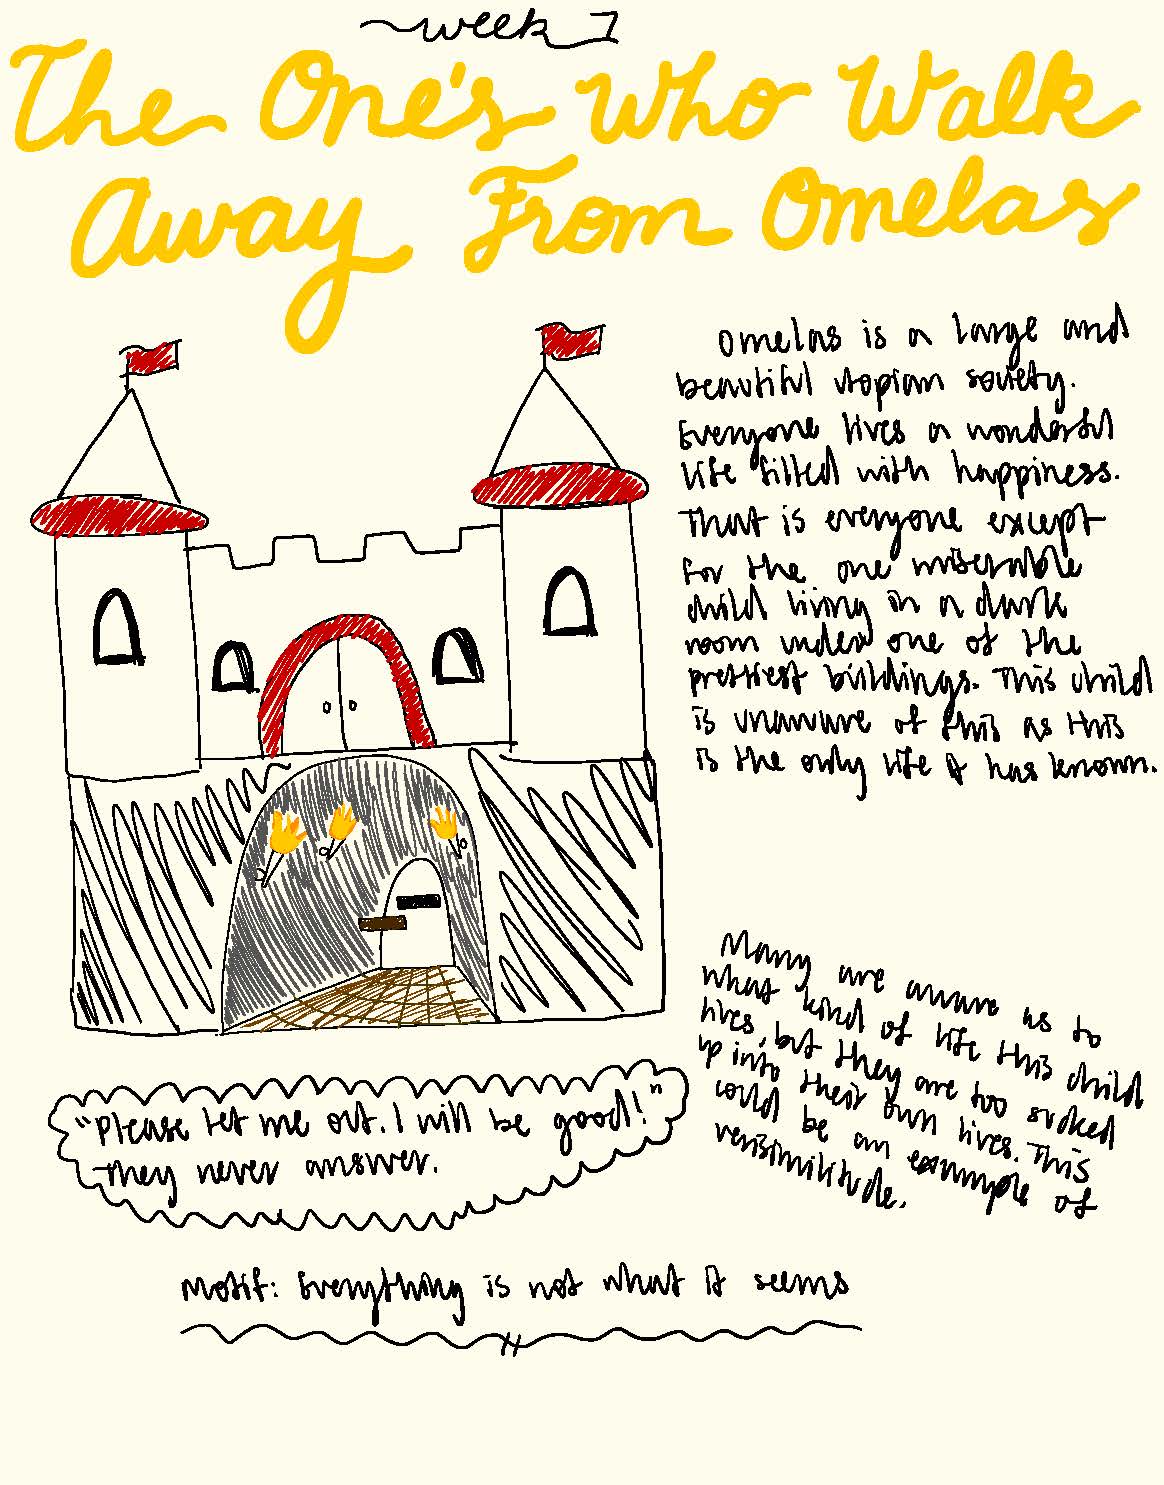 week 7
The One's Who Walk
Away From Omelas
Omelas is a large and
beautiful utopian society.
Everyone lives a wonderful
life filled with happiness.
That is everyone except
for the one miserable
child living in a dark
room under one of the
prettiest buildings. This child
is unaware of this as this
is the only life it has known.
Many are aware as to
what kind of life this child
lives, but they are too sucked
up into their own lives. This
could be an example of
verisimilitude.
"Please let me out. I will be good!"
They never answer.
Motif: Everything is not what it seems